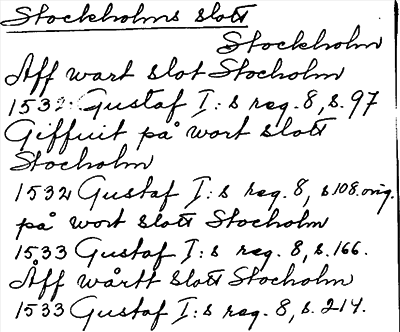 Stockholms slott
Stockholm
Aff wart slot Stocholm
1532 Gustaf I:s reg. 8, s. 97
Giffuit på wort slott
Stocholm
1532 Gustaf I:s reg. 8, s 108. orig.
på wort slott Stocholm
1533 Gustaf I:s reg. 8, s. 166.
Åff wårtt slott Stocholm
1533 Gustaf I:s reg. 8, s. 214.